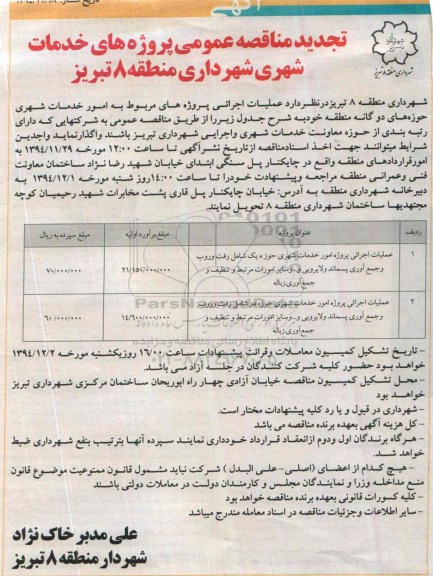 آگهی
تجدید مناقصه عمومی پروژه های خدمات
شهری شهرداری منطقه ۸ تبریز
شهرداری منطقه ۸ تبریز
شهرداری منطقه ۸ تبریز درنظر دارد عملیات اجرائی پروژه های مربوط به امور خدمات شهری
حوزه های دو گانه منطقه خود به شرح جدول زیر را از طریق مناقصه عمومی به شرکتهایی که دارای
رتبه بندی از حوزه معاونت خدمات شهری واجرایی شهرداری تبریز باشند واگذار نماید واجدین
شرایط میتوانند جهت اخذ اسناد مناقصه از تاریخ نشر آگهی تا ساعت ۱۲:۰۰ مورخه ۱۳۹۴/۱۱/۲۹ به
امور قراردادهای منطقه واقع در چایکنار پل سنگی ابتدای خیابان شهید رضا نژاد ساختمان معاونت
فنی وعمرانی منطقه مراجعه وپیشنهادت خود را تا ساعت ۱۴:۰۰ روز شنبه مورخه ۱۳۹۴/۱۲/۱ به
دبیرخانه شهرداری منطقه به آدرس: خیابان چایکنار پل قاری پشت مخابرات شهید رحیمیان کوچه
مجتهدیها ساختمان شهرداری منطقه ۸ تحویل نمایند.
ردیف عنوان پروژه مبلغ برآورد اولیه مبلغ سپرده به ریال
۱ عملیات اجرائی پروژه امور خدمات شهری حوزه یک شامل رفت وروب
و جمع آوری پسماند ولایروبی و..وسایر امورات مرتبط و تنظیف و ۲۱/۱۵۷/۰۰۰/۰۰۰ ۷۰/۰۰۰/۰۰۰
جمع آوری زباله
۲ عملیات اجرائی پروژه امور خدمات شهری حوزه دو شامل رفت وروب
و جمع آوری پسماند ولایروبی و..وسایر امورات مرتبط و تنظیف و ۱۴/۶۰۰/۰۰۰/۰۰۰ ۶۰/۰۰۰/۰۰۰
جمع آوری زباله
- تاریخ تشکیل کمیسیون معاملات وقرائت پیشنهادات ساعت ۱۶:۰۰ روز یکشنبه مورخه ۱۳۹۴/۱۲/۲
خواهد بود حضور کلیه شرکت کنندگان در جلسه آزاد می باشد.
- محل تشکیل کمیسیون مناقصه خیابان آزادی چهار راه ابوریحان ساختمان مرکزی شهرداری تبریز
خواهد بود
- شهرداری در قبول و یا رد کلیه پیشنهادات مختار است.
- کل هزینه آگهی بعهده برنده مناقصه می باشد
- هرگاه برندگان اول ودوم از انعقاد قرارداد خودداری نمایند سپرده آنها بترتیب بنفع شهرداری ضبط
خواهد شد.
- هیچ کدام از اعضای (اصلی- علی البدل) شرکت نباید مشمول قانون ممنوعیت موضوع قانون
منع مداخله وزرا و نمایندگان مجلس و کارمندان دولت در معاملات دولتی باشند
- کلیه کسورات قانونی بعهده برنده مناقصه خواهد بود
- سایر اطلاعات وجزئیات مناقصه در اسناد معامله مندرج میباشد
علی مدبر خاک نژاد
شهردار منطقه ۸ تبریز